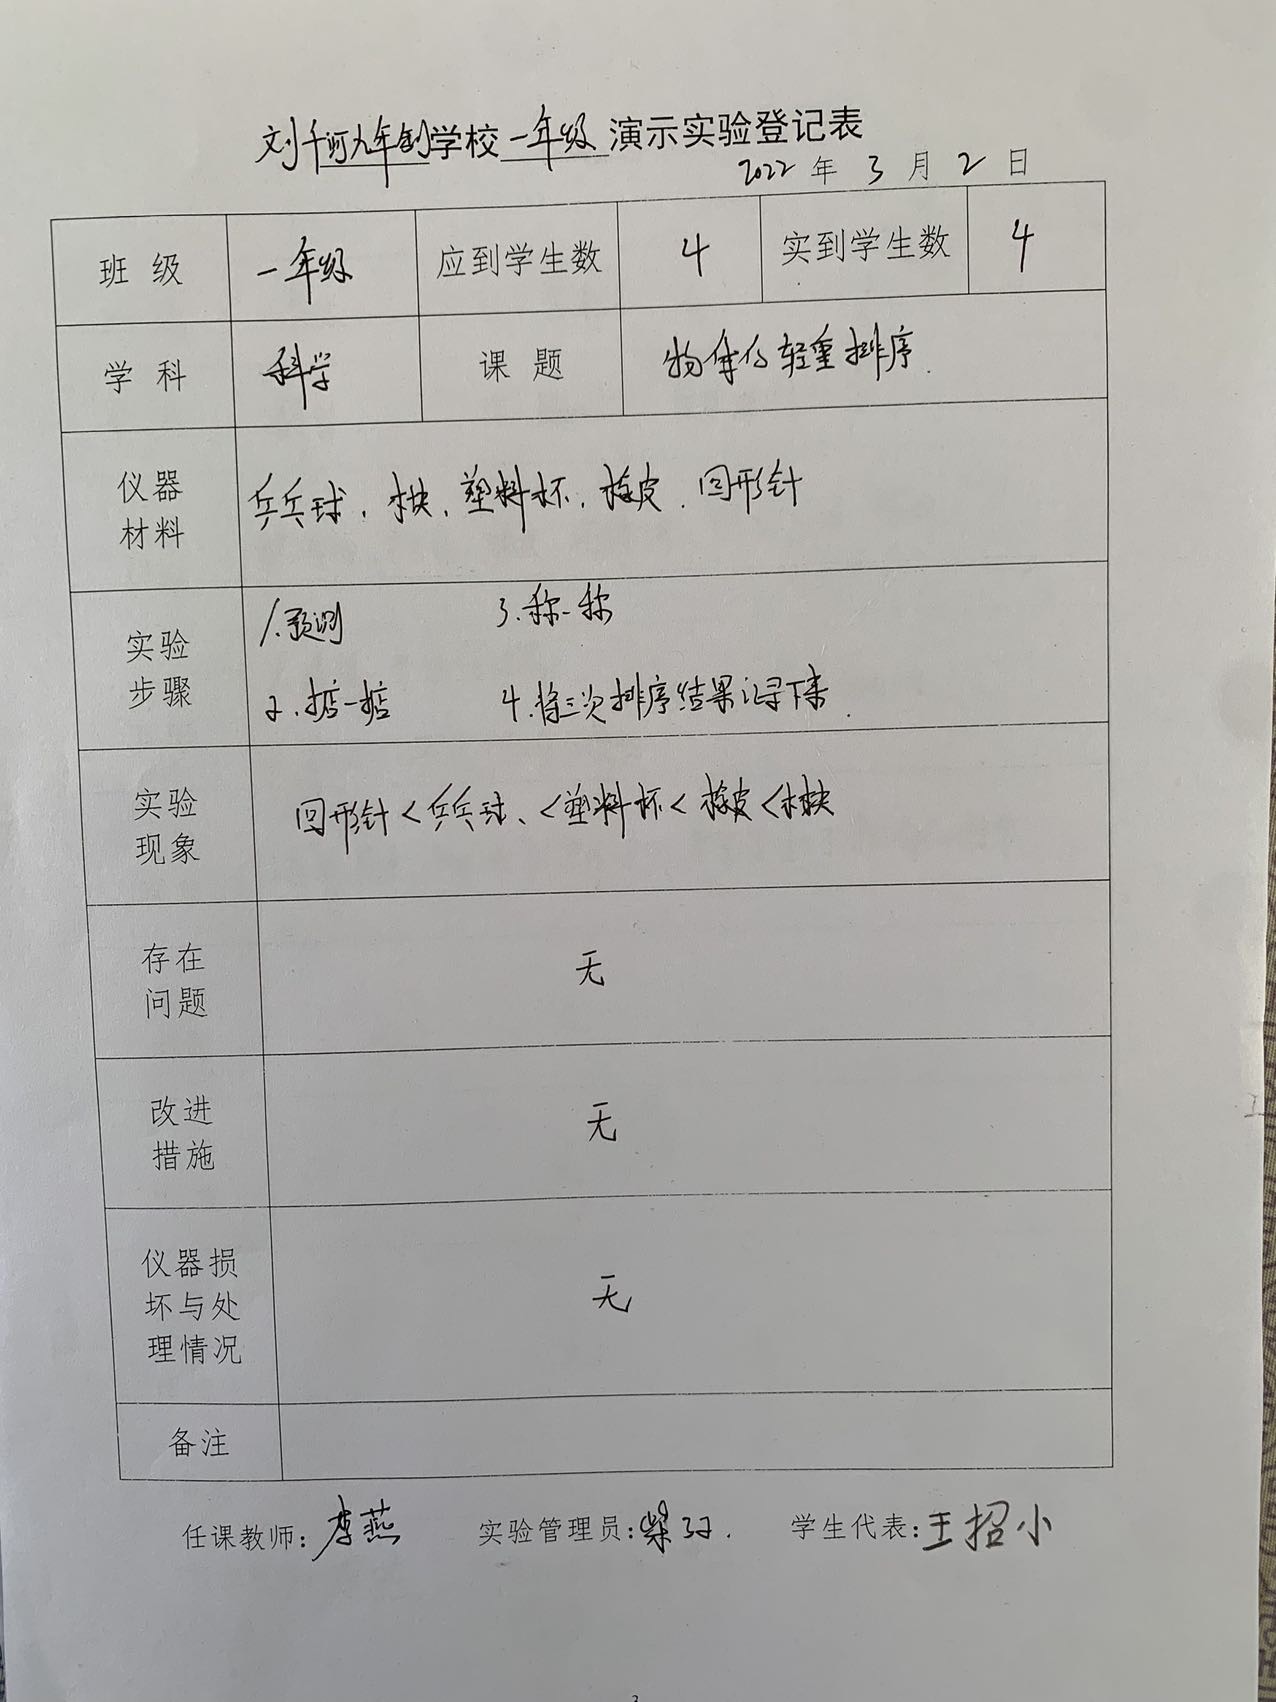 刘千河九年制学校一年级演示实验登记表
2022年3月2日
班级 一年级 应到学生数 4 实到学生数 4
学科 科学 课题 物体的轻重排序.
仪器
材料
乒乓球、木块、塑料杯、橡皮、回形针
实验
步骤
1.预测 3.称一称
2.掂一掂 4.将三次排序结果记录下来.
实验
现象
回形针<乒乓球、<塑料杯<橡皮<木块
存在
问题
无
改进
措施
无
仪器损
坏与处
理情况
无
备注
任课教师:李燕 实验管理员:柴 学生代表:王招小
3